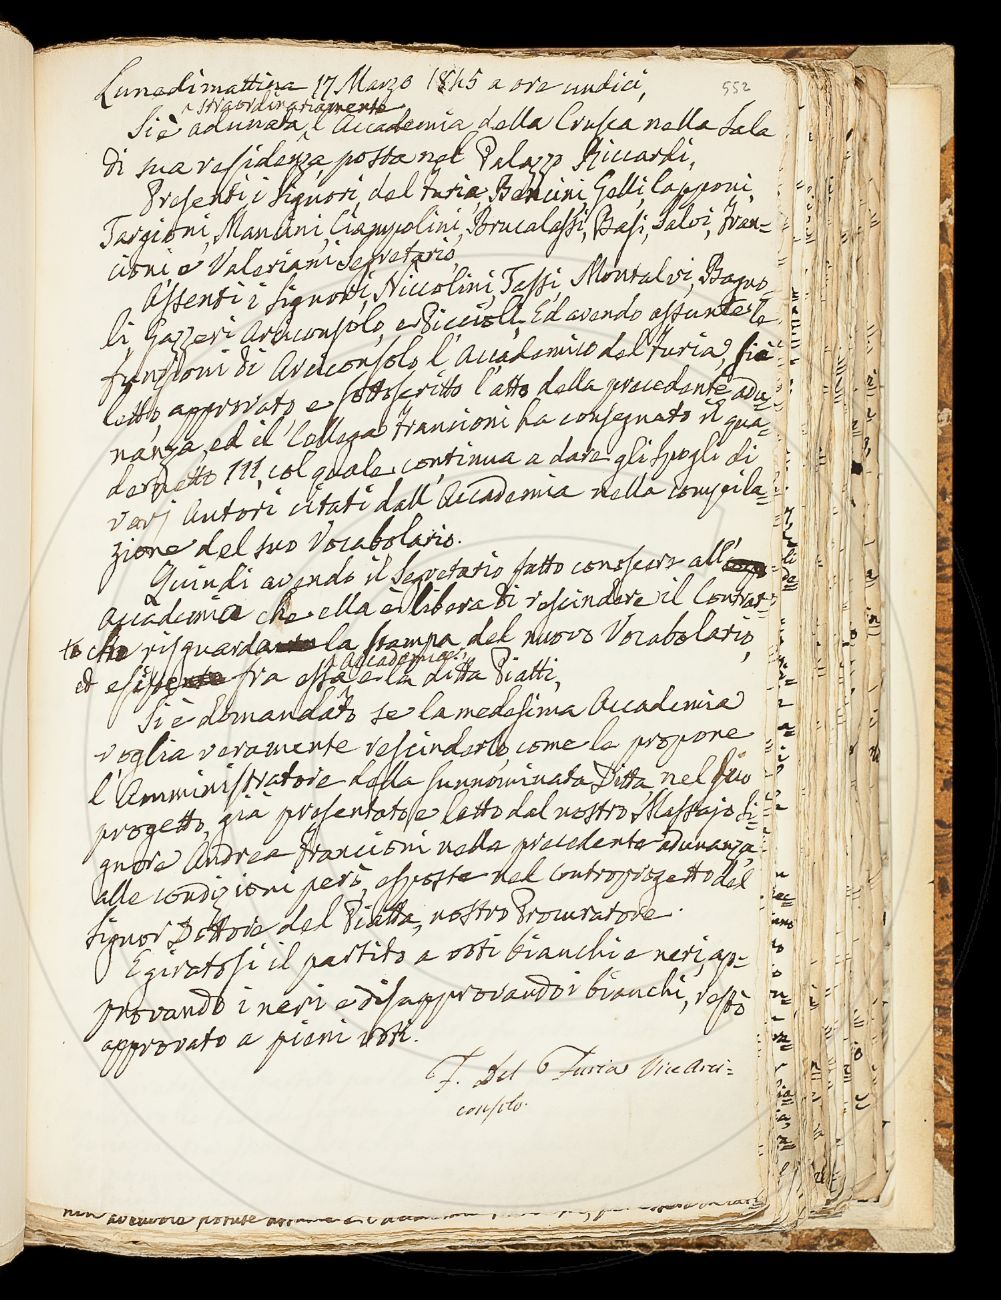 552
Lunedì mattina 17 Marzo 1845 a ore undici,
straordinariamente
Si è adunata, l'Accademia della Crusca nella Sala
di sua residenza, posta nel Palazzo Riccardi,
Presenti i Signori, del Furia, Bencini, Gelli, Capponi,
Targioni, Mancini, Ciampolini, Brucalassi, Basi, Salvi, Fran=
cioni, e Valeriani Segretario,
Assenti i Signori, Niccolini, Tassi, Montalvi, Bagno=
li, Gazzeri Arciconsolo, e Piccioli, Ed avendo assunte le
funzioni di Arciconsolo, l'Accademico del Furia, si è
letto, approvato e sottoscritto l'atto della precedente adu=
nanza, ed il Collega Francioni ha consegnato il qua=
dernetto 111, col quale continua a dare gli spogli di
varj Autori citati dall'Accademia nella compila=
zione del suo Vocabolario.
Quindi avendo il Segretario fatto conoscere all'
Accademia che ella è libera di rescindere il Contrat=
to che risguarda la stampa del nuovo Vocabolario,
Accademia,
ed esiste fra essa e la ditta Piatti,
Si è domandato se la medesima Accademia
voglia veramente rescinderlo, come le propone
l'Amministratore della sunnominata Ditta, nel suo
progetto, già presentato e letto dal nostro Massajo Si=
gnore Andrea Francioni nella precedente adunanza,
alle condizioni però, esposte nel controprogetto del
Signor Dottore del Piatta, nostro Procuratore.
E giratosi il partito a voti bianchi e neri, ap=
provando i neri e disapprovando i bianchi, restò
approvato a pieni voti.
F. Del Furia Vice Arci=
consolo.